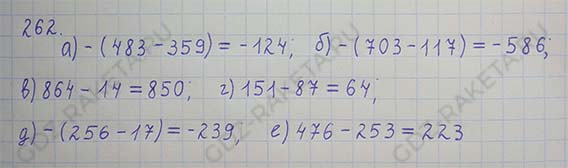 262.
а) -(483-359) = -124; б) -(703-117) = -586;
в) 864-14 = 850; г) 151-87 = 64;
д) -(256-17) = -239, е) 476-253 = 223
GDZ-RAKETA.RU